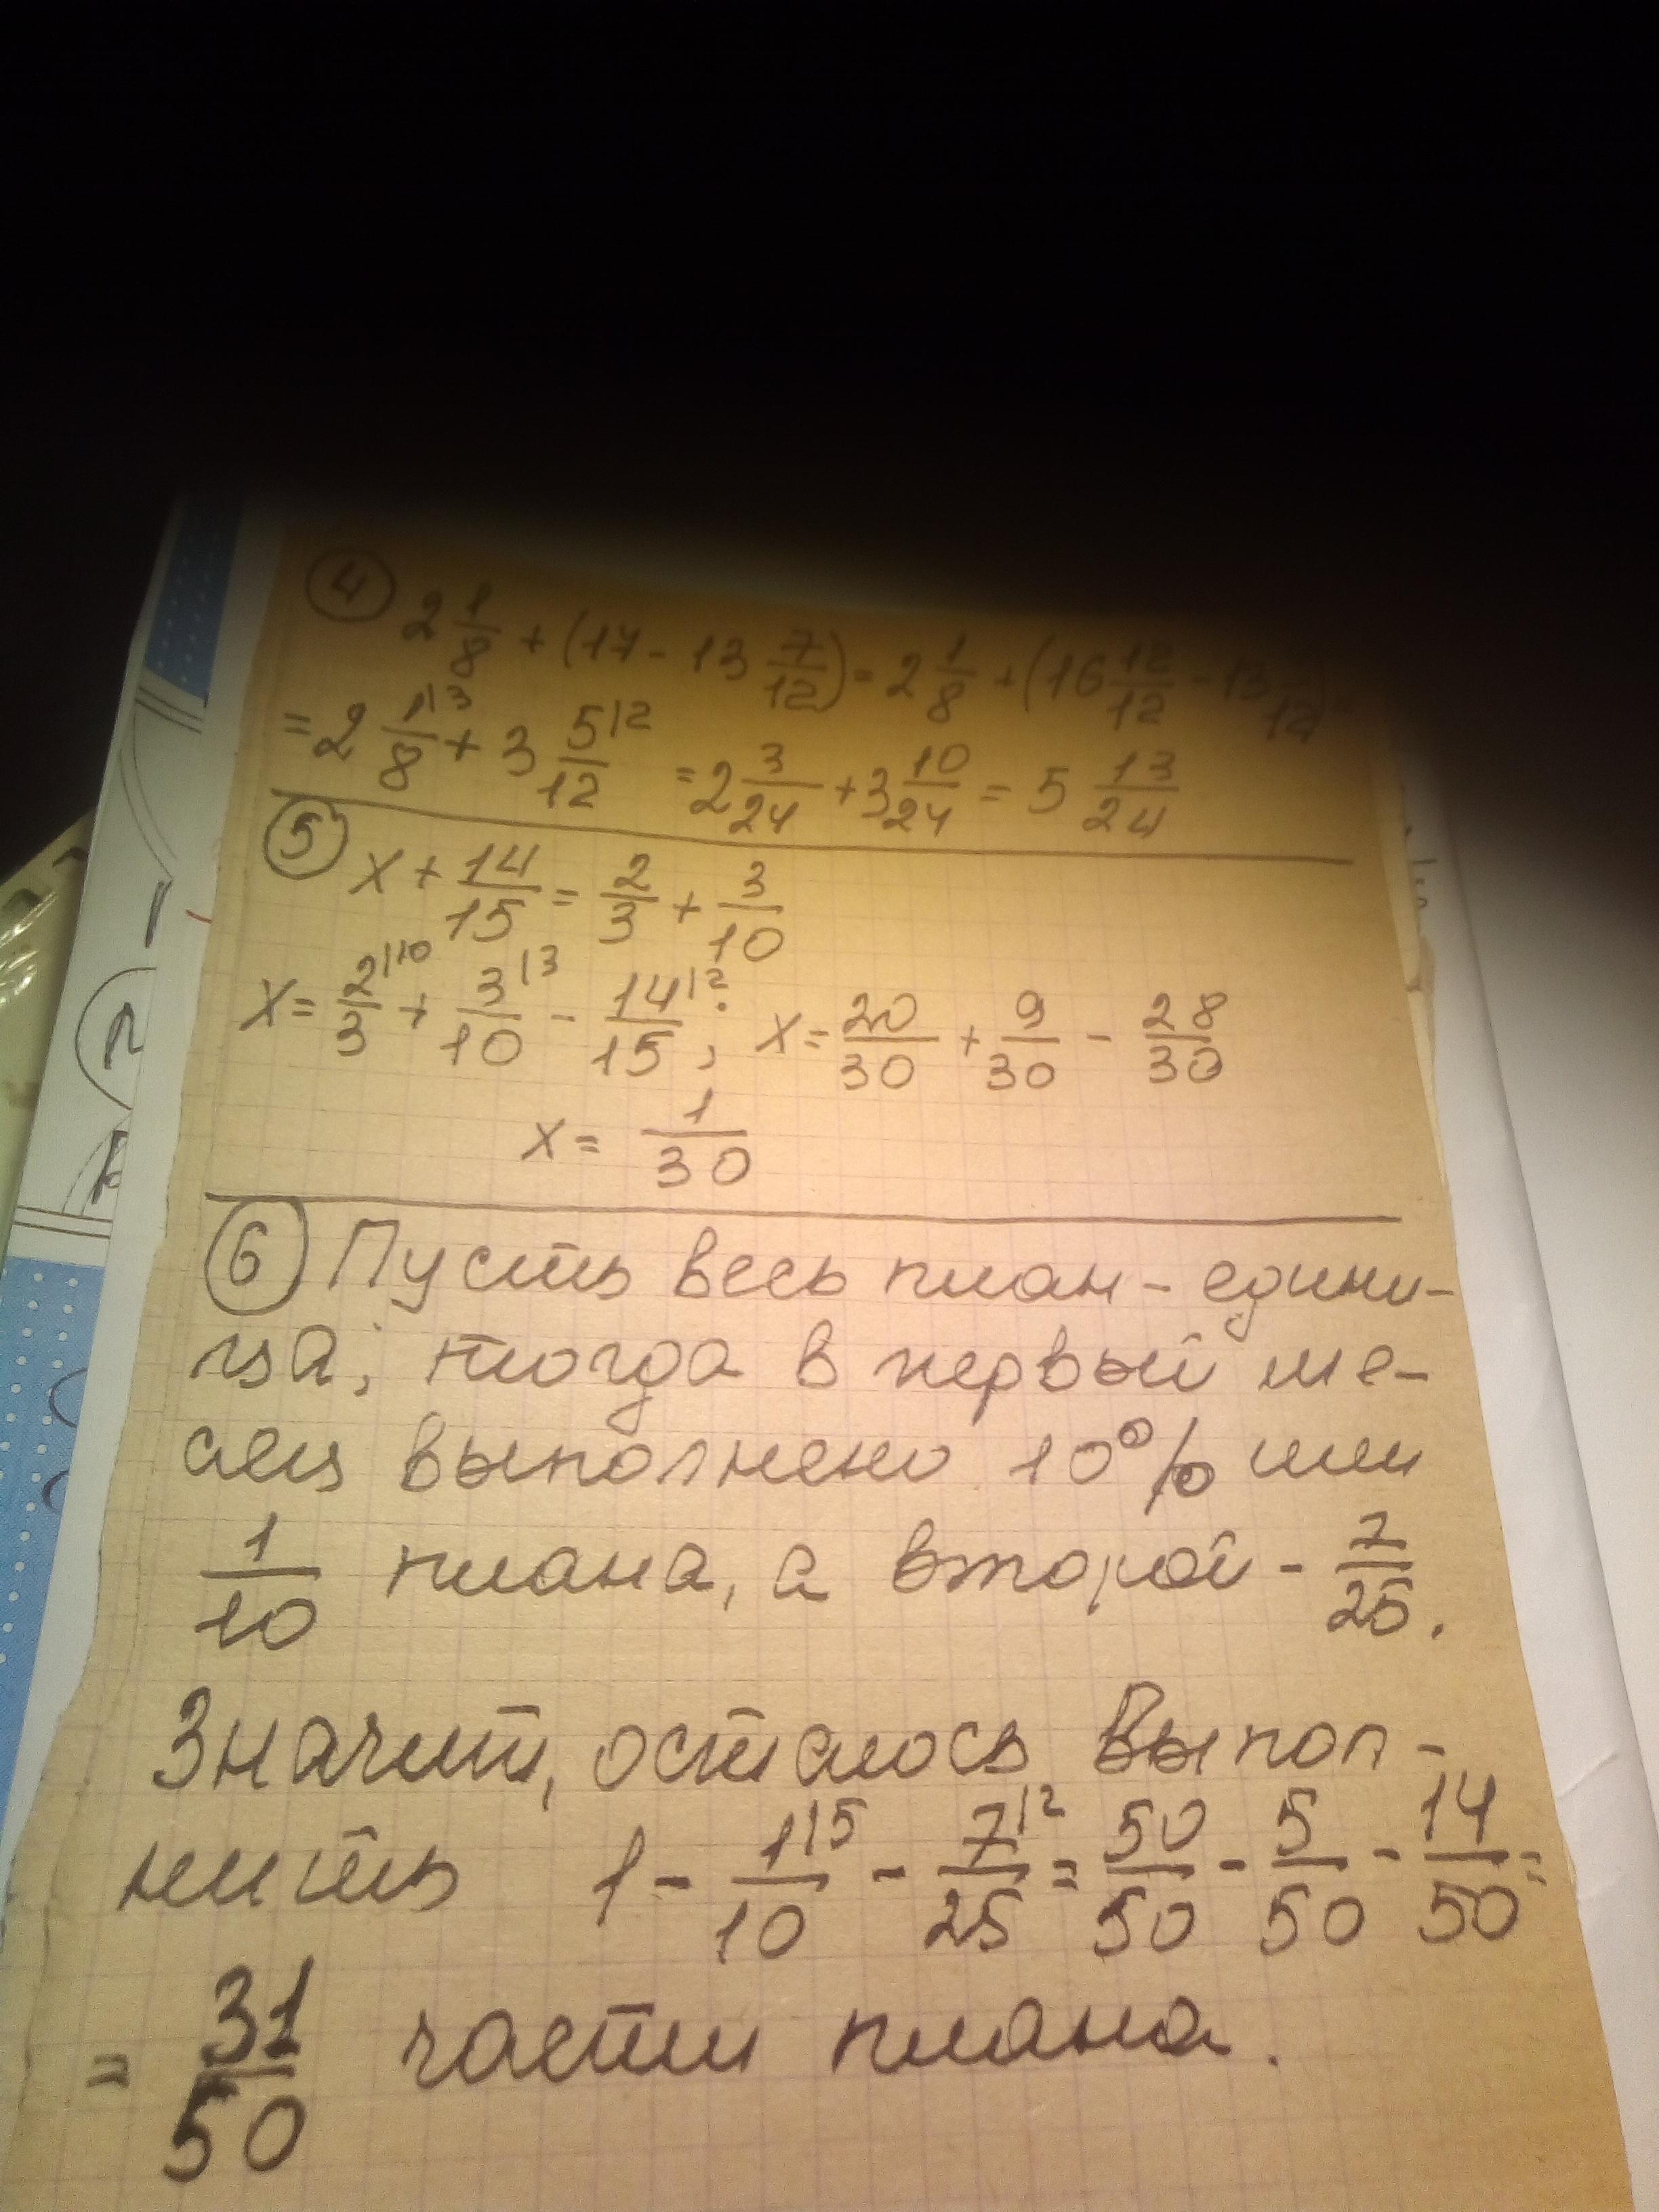 ④ 2 1/8 + (17 - 13 7/12) = 2 1/8 + (16 12/12 - 13 /12) =
= 2 1|3/8 + 3 5|2/12 = 2 3/24 + 3 10/24 = 5 13/24
⑤ x + 14/15 = 2/3 + 3/10
x = 2|10/3 + 3|3/10 - 14|2/15 ; x = 20/30 + 9/30 - 28/30
x = 1/30
⑥ Пусть весь план - едини-
ца; тогда в первый ме-
сяц выполнено 10% или
1/10 плана, а второй - 7/25.
Значит, осталось выпол-
нить 1 - 1|5/10 - 7|2/25 = 50/50 - 5/50 - 14/50 =
= 31/50 части плана.